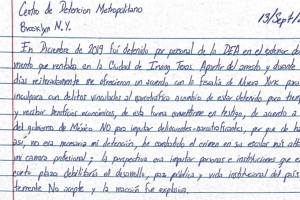 Centro de Detención Metropolitano
Brooklyn N.Y.
13/Sept/
En Diciembre de 2019 fui detenido por personal de la DEA en el exterior del
que rentaba en la Ciudad de Irving Texas. A partir del arresto y durante
días reiteradamente me ofrecieron un acuerdo con la fiscalía de Nueva York para
inculpara con delitos vinculados al narcotráfico acambio de estar detenido poco tiem
y recibir beneficios económicos, de esta forma convertirme en testigo, de acuerdo a
del gobierno de México NO para imputar delincuentes-narcotraficantes, por que de ha
así, no era necesaria mi detención, he combatido el crimen en su escalar más alto
mi carrera profesional; la perspectiva era imputar personas e instituciones que en
corto plazo debilitaría el desarrollo, paz pública y vida institucional del país
temente No acepté y la reacción fue explosiva.